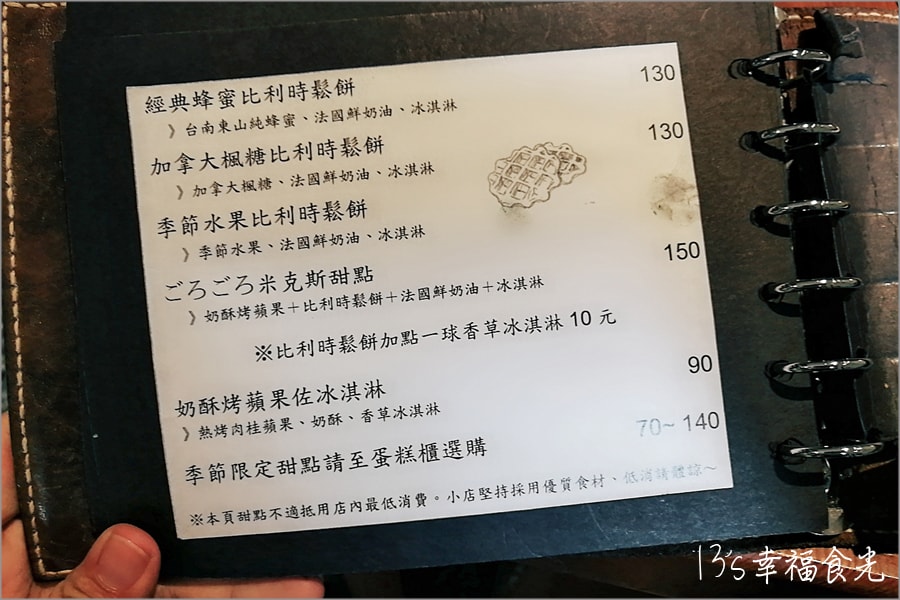 經典蜂蜜比利時鬆餅 130
》台南東山純蜂蜜、法國鮮奶油、冰淇淋
加拿大楓糖比利時鬆餅 130
》加拿大楓糖、法國鮮奶油、冰淇淋
季節水果比利時鬆餅
》季節水果、法國鮮奶油、冰淇淋
ごろごろ米克斯甜點 150
》奶酥烤蘋果＋比利時鬆餅＋法國鮮奶油＋冰淇淋
※比利時鬆餅加點一球香草冰淇淋 10 元
奶酥烤蘋果佐冰淇淋 90
》熱烤肉桂蘋果、奶酥、香草冰淇淋
季節限定甜點請至蛋糕櫃選購 70~ 140
※本頁甜點不適抵用店內最低消費。小店堅持採用優質食材、低消請體諒～
13's幸福食光